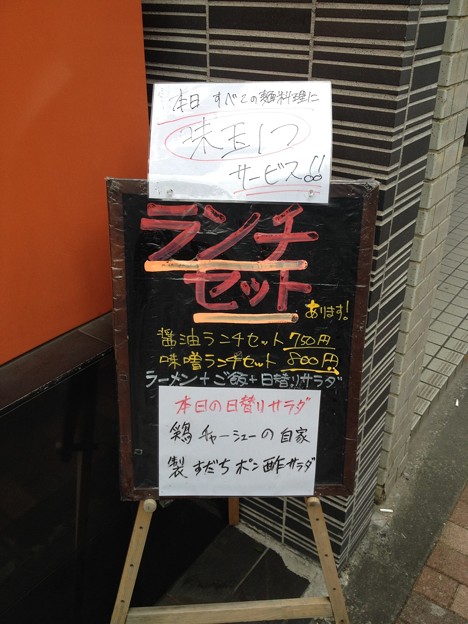 本日 すべての麺料理に
味玉1つ
サービス!!
ランチ
セット
あります!
醤油ランチセット 750円
味噌ランチセット 800円
ラーメン+ご飯+日替りサラダ
本日の日替りサラダ
鶏チャーシューの自家
製すだちポン酢サラダ